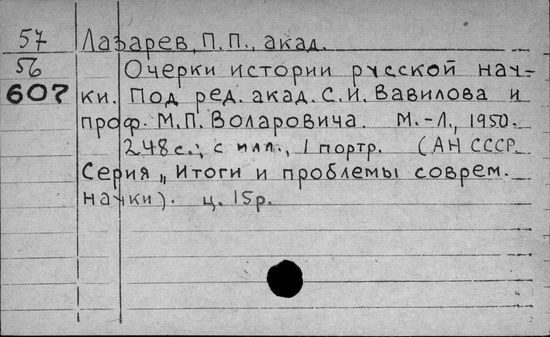 57 Лазарев, П.П., акад.
56 Очерки истории русской нау-
607 ки. Под ред. акад. С.И. Вавилова и
проф. М.П. Воларовича. М.-Л., 1950.
248 с.; с илл., 1 портр. (АН СССР
Серия „Итоги и проблемы соврем.
науки). ц. 15р.